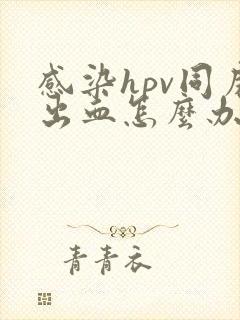 感染hpv同房
出血怎麼办
青青衣